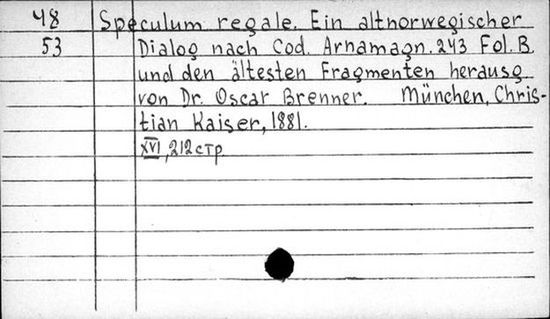 48 Speculum regale. Ein altnorwegischer
53 Dialog nach Cod. Arnamagn. 243 Fol. B.
und den ältesten Fragmenten herausg
von Dr. Oscar Brenner. München, Chris-
tian Kaiser, 1881.
XVI, 212 стр.